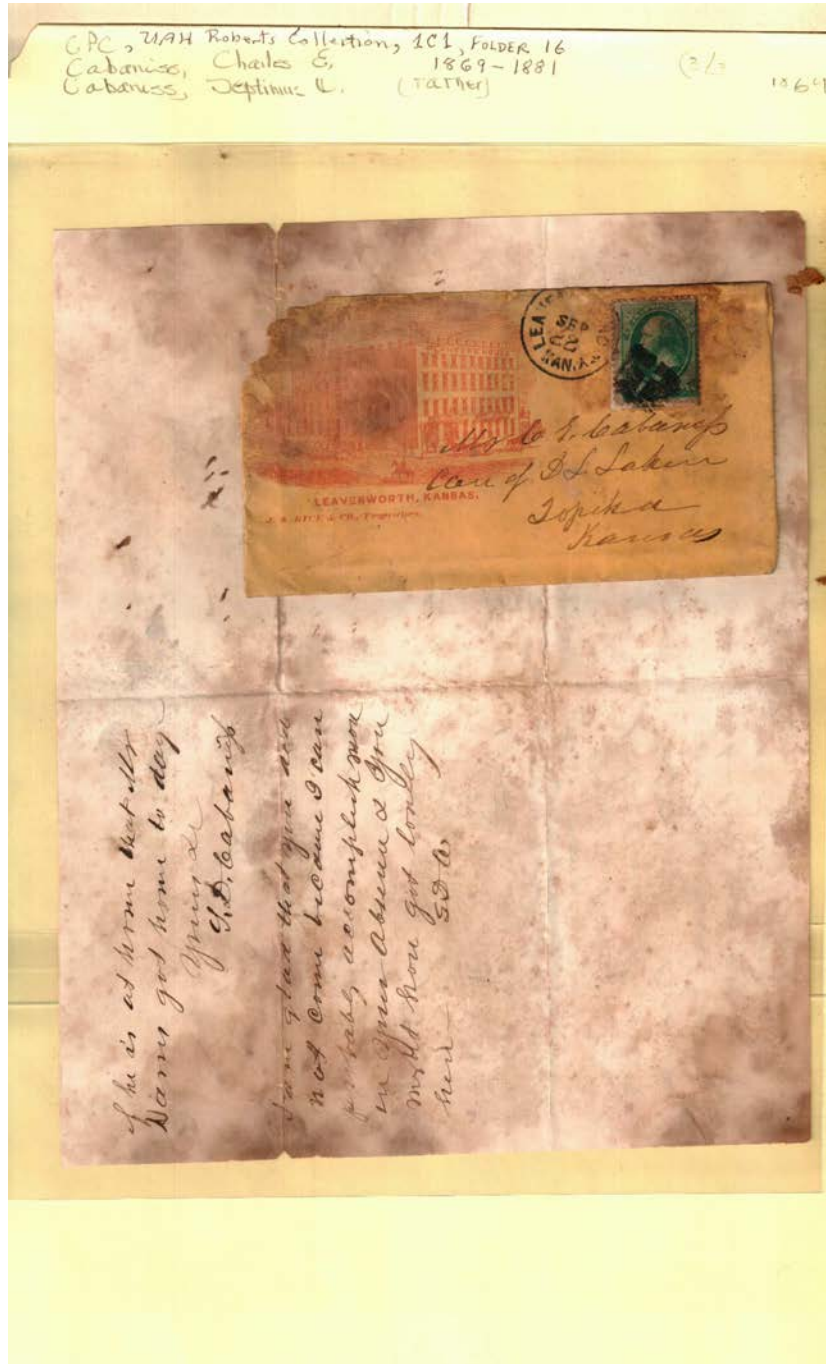 CPC, UAH Roberts Collection, 1C1, FOLDER 16
Cabaniss, Charles E, 1869-1881 (2/2
Cabaniss, Septimus (Father) 186
SEP
KAN.
LEAVENWORTH, KANSAS.
& CO., Proprietors
Mr C E. Cabaniss
Care of D L Laken
Topeka
Kansas
if he is at home that Mr
Dams got home to day
Yours &c
S. D. Cabaniss
I am glad that you did
not come because I can
probably accomplish more
in your absence & you
might have got lonely
here
S D C.